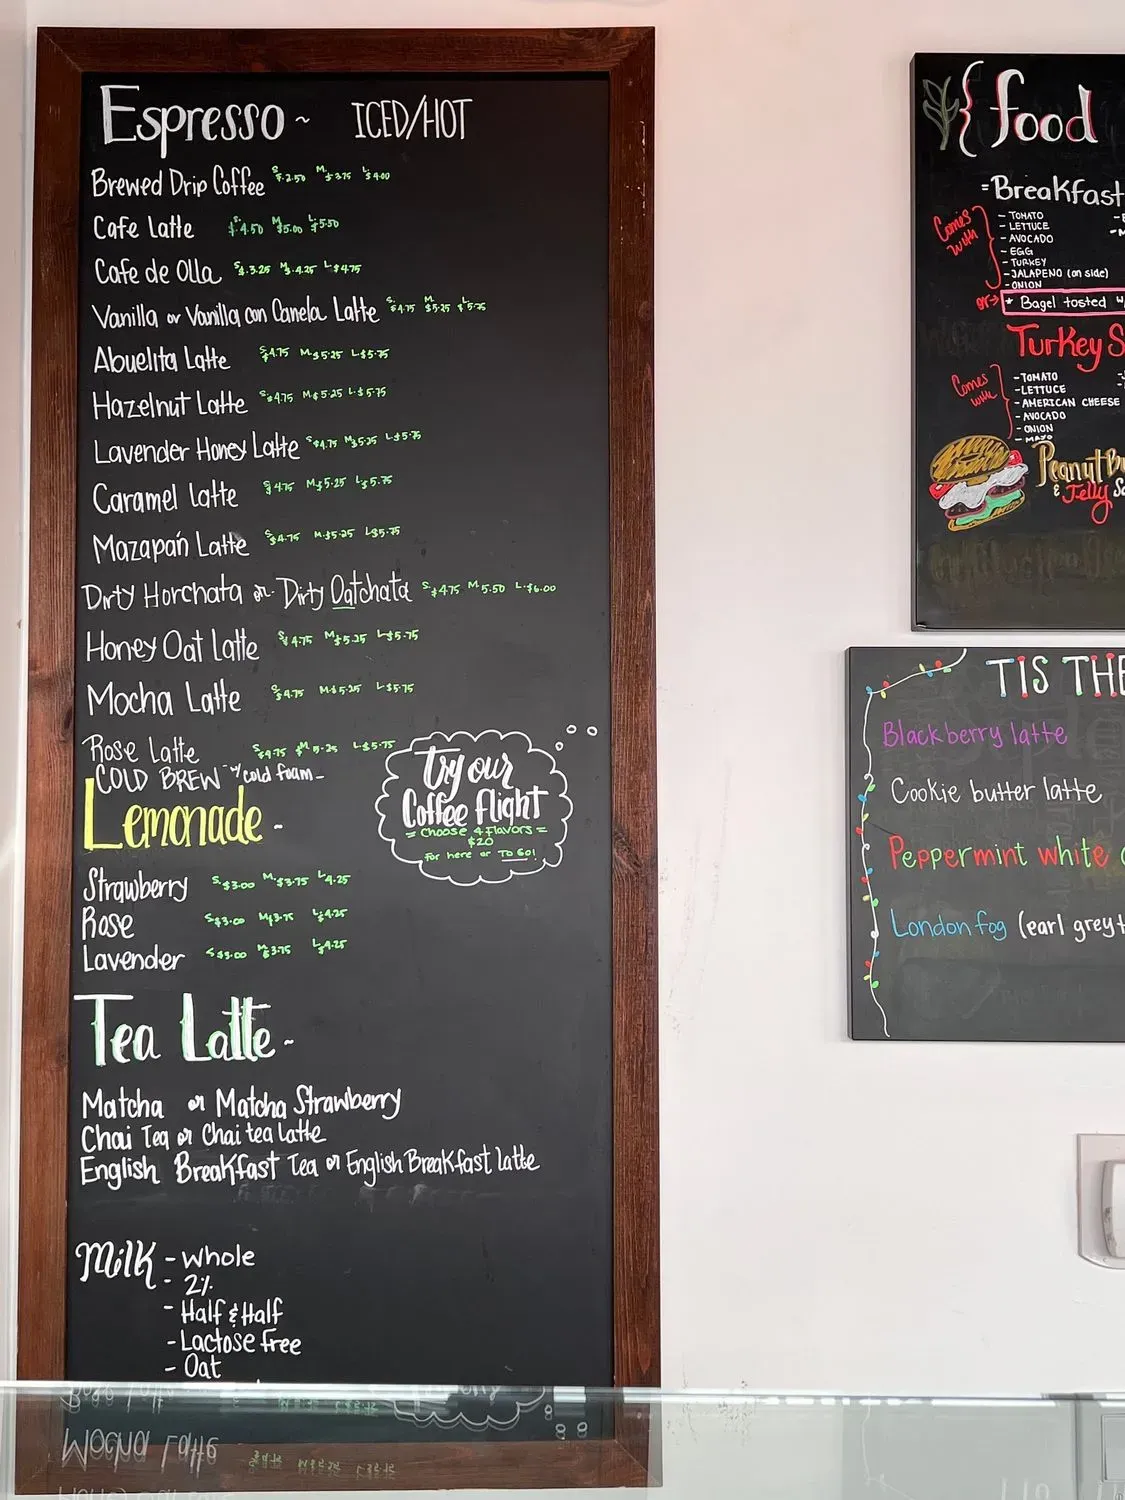 Espresso ~ ICED/HOT
Brewed Drip Coffee S. $2.50 M. $3.75 L $4.00
Cafe Latte S. $4.50 M $5.00 L. $5.50
Cafe de Olla S. $3.25 M. $4.25 L $4.75
Vanilla or Vanilla con Canela Latte S. $4.75 M. $5.25 L $5.75
Abuelita Latte S $4.75 M $5.25 L $5.75
Hazelnut Latte S $4.75 M $5.25 L. $5.75
Lavender Honey Latte S $4.75 M $5.25 L $5.75
Caramel Latte S $4.75 M $5.25 L $5.75
Mazapań Latte S $4.75 M $5.25 L $5.75
Dirty Horchata or Dirty Oatchata S. $4.75 M 5.50 L. $6.00
Honey Oat Latte S $4.75 M $5.25 L $5.75
Mocha Latte S $4.75 M $5.25 L $5.75
Rose Latte S $4.75 M $5.25 L $5.75
COLD BREW w/cold foam -
try our
Coffee flight
= Choose 4 Flavors =
$20
for here or TO GO!
Lemonade -
Strawberry S. $3.00 M. $3.75 L 4.25
Rose S $3.00 M $3.75 L $4.25
Lavender S $3.00 M $3.75 L $4.25
Tea Latte ~
Matcha or Matcha Strawberry
Chai Tea or Chai tea latte
English Breakfast Tea or English Breakfast latte
Milk - Whole
- 2%
- Half & Half
- Lactose free
- Oat
{ food
= Breakfast
Comes with
- TOMATO
- LETTUCE
- AVOCADO
- EGG
- TURKEY
- JALAPENO (on side)
- ONION
or→ * Bagel tosted
Turkey S
Comes with
- TOMATO
- LETTUCE
- AMERICAN CHEESE
- AVOCADO
- ONION
- MAYO
Peanut Bu
& Jelly Sa
TIS THE
Blackberry latte
Cookie butter latte
Peppermint white
London fog (earl grey t